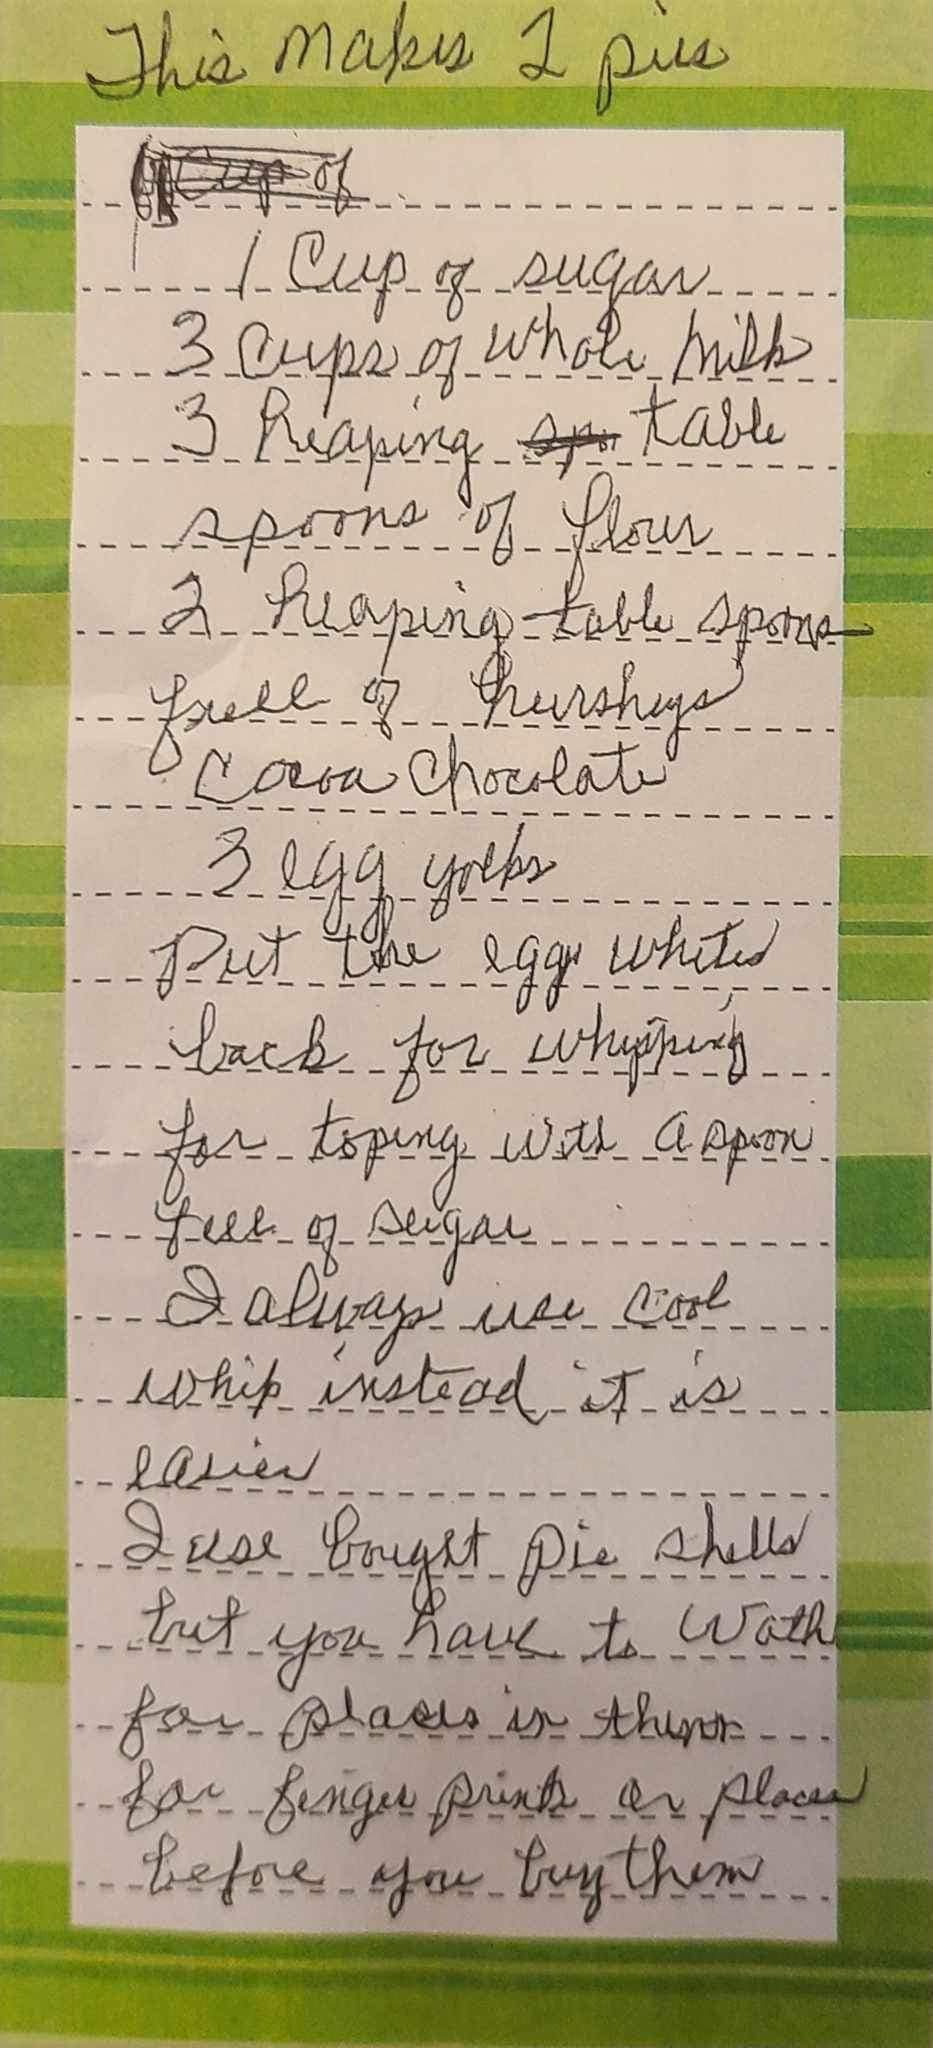 This Makes 2 pies
Cup of
1 Cup of sugar
3 Cups of whole Milk
3 heaping spo table
spoons of flour
2 heaping table spoons
full of hursheys
Cocoa Chocolate
3 egg yolks
Put the egg whites
back for whipping
for toping with a spoon
full of sugar
I always use cool
whip instead it is
easier
I use bought pie shells
but you have to Wath
for places in them
for finger prints or places
before you buy them